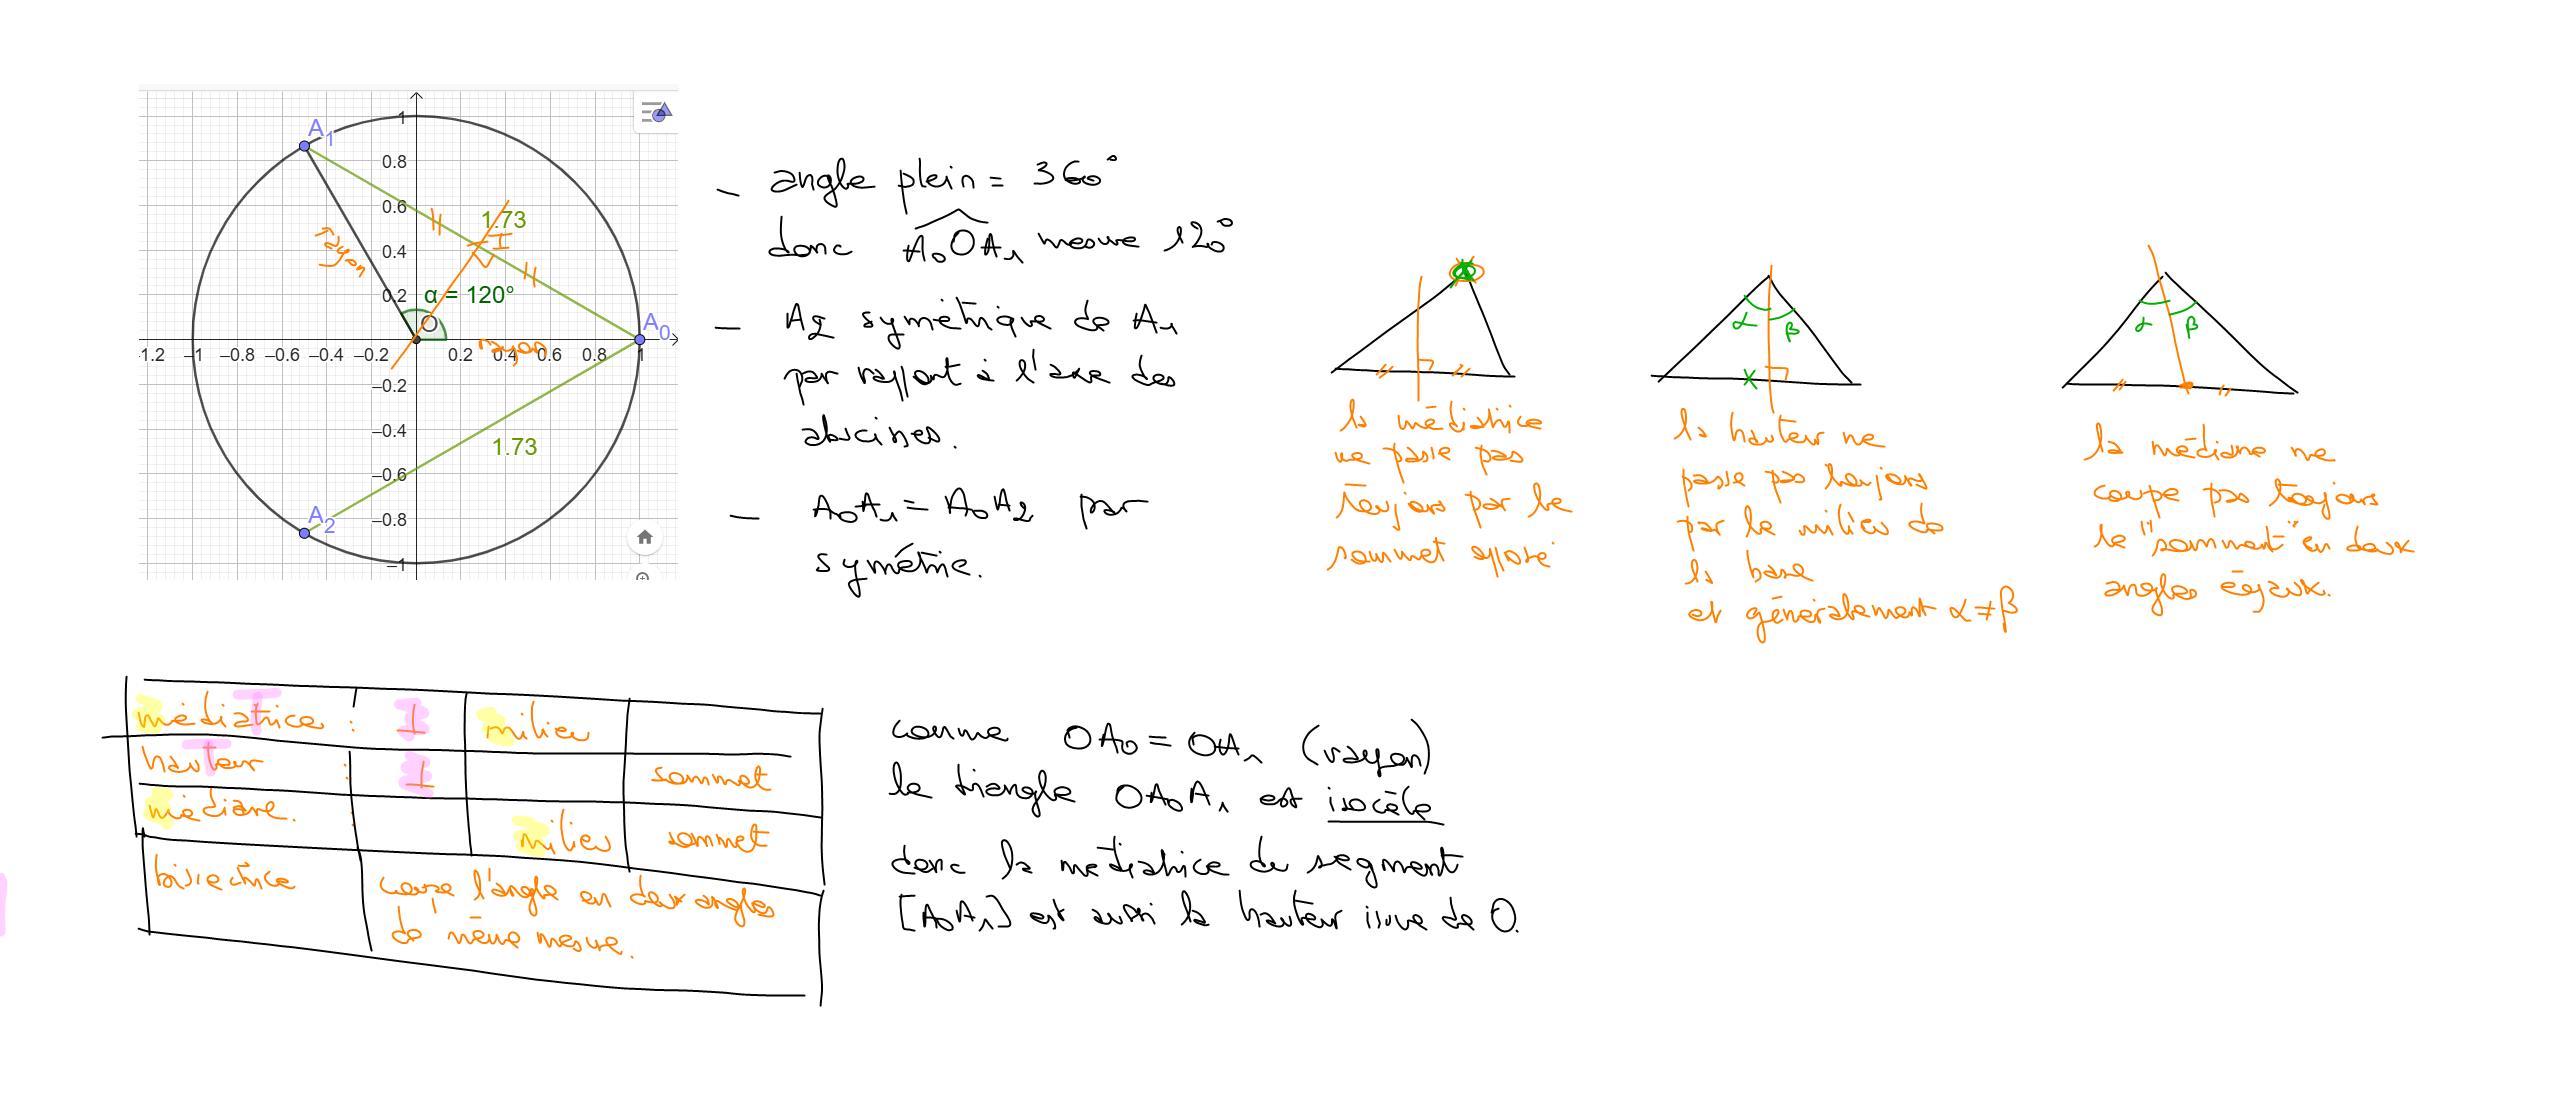 A1
1
0.8
0.6
1.73
I
0.4
rayon
0.2
α = 120°
O
A0
-1.2 -1 -0.8 -0.6 -0.4 -0.2 0.2 0.4 0.6 0.8 1
rayon
-0.2
-0.4
1.73
-0.6
A2
-0.8
-1
- angle plein = 360°
donc A0OA1 mesure 120°
- A2 symétrique de A1
par rapport à l'axe des
abscisses.
- A0A1 = A0A2 par
symétrie.
la médiatrice
ne passe pas
toujours par le
sommet opposé
α β
la hauteur ne
passe pas toujours
par le milieu de
la base
et généralement α ≠ β
α β
la médiane ne
coupe pas toujours
le "sommet" en deux
angles égaux.
médiatrice : ⊥ milieu
hauteur : ⊥ sommet
médiane. : milieu sommet
bissectrice coupe l'angle en deux angles
de même mesure.
comme OA0 = OA1 (rayon)
le triangle OA0A1 est isocèle
donc la médiatrice du segment
[A0A1] est aussi la hauteur issue de O.